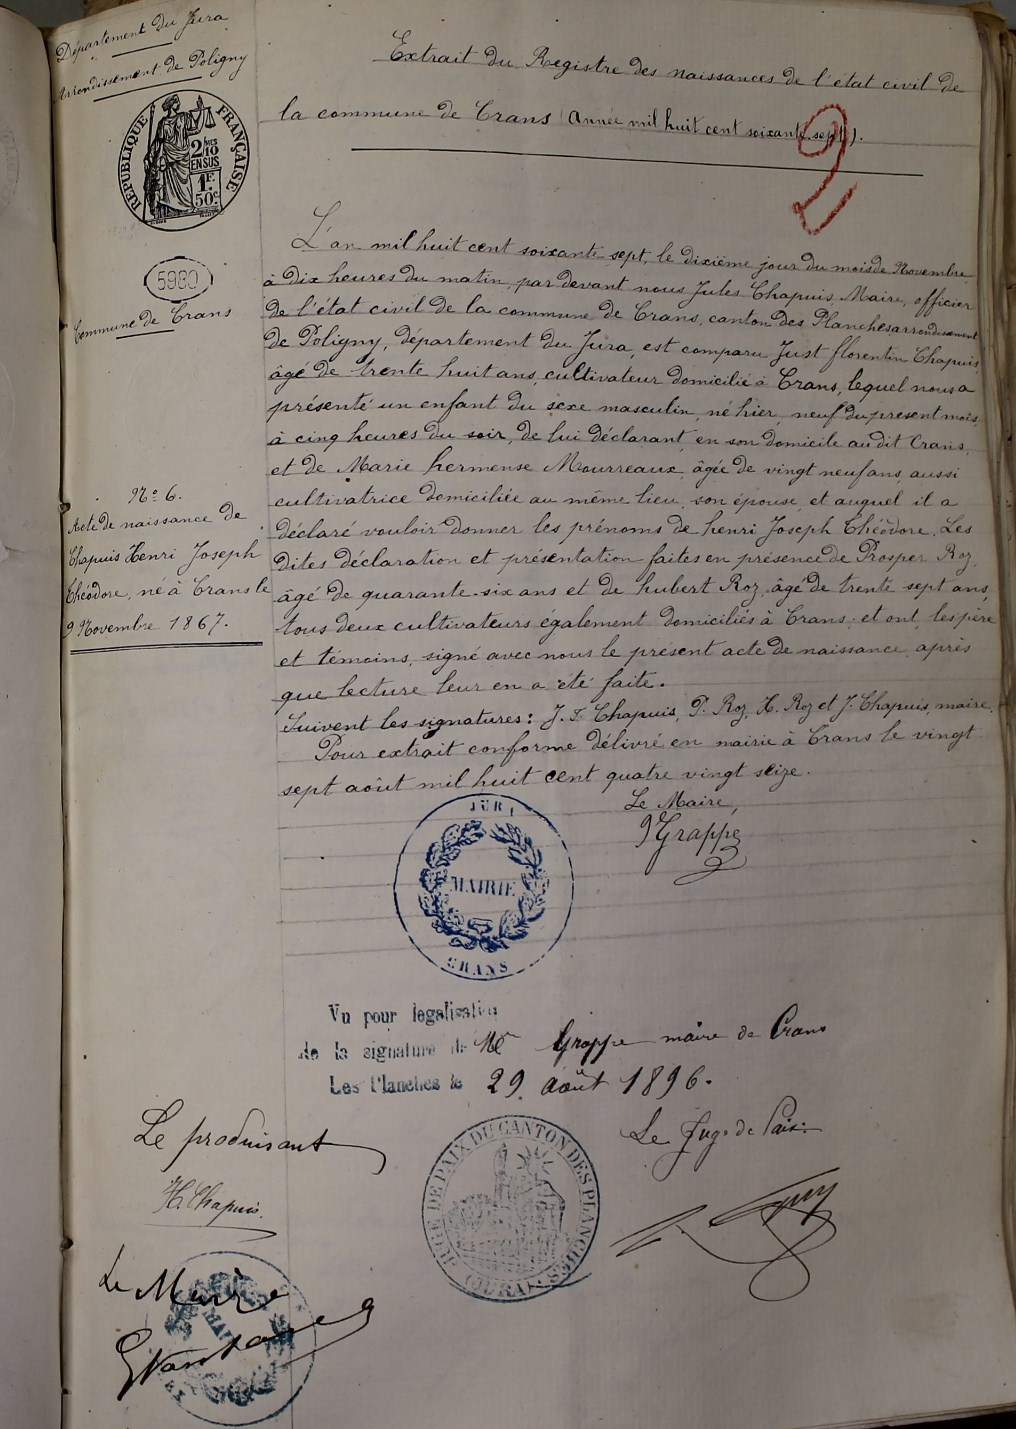 Département du Jura
Arrondissement de Poligny
RÉPUBLIQUE FRANÇAISE
2/10
EN SUS
1F.
50c
5980
Commune de Crans
No 6.
Acte de naissance de
Chapuis Henri Joseph
Théodore, né à Crans le
9 Novembre 1867.
Extrait du Registre des naissances de l'état civil de
la commune de Crans (année mil huit cent soixante sept).
2
L'an mil huit cent soixante sept, le dixième jour du mois de Novembre
à dix heures du matin, par devant nous Jules Chapuis, Maire, officier
de l'état civil de la commune de Crans, canton des Planches arrondissement
de Poligny, département du Jura, est comparu Just florentin Chapuis,
âgé de trente huit ans, cultivateur domicilié à Crans, lequel nous a
présenté un enfant du sexe masculin, né hier, neuf du present mois,
à cinq heures du soir, de lui déclarant, en son domicile au dit Crans,
et de Marie hermense Mourreaux, âgée de vingt neuf ans, aussi
cultivatrice domiciliée au même lieu, son épouse, et auquel il a
déclaré vouloir donner les prénoms de henri Joseph Théodore. Les
dites déclaration et présentation faites en présence de Prosper Roz,
âgé de quarante-six ans et de hubert Roz, âgé de trente sept ans,
tous deux cultivateurs également domiciliés à Crans; et ont, les père
et témoins, signé avec nous le présent acte de naissance, après
que lecture leur en a été faite.
Suivent les signatures: J. F. Chapuis, P. Roz, H. Roz et J. Chapuis, maire.
Pour extrait conforme délivré en mairie à Crans le vingt
sept août mil huit cent quatre vingt seize.
Le Maire,
Grappe
JURA
MAIRIE
CRANS
Vu pour legalisation
de la signature de Mr Grappe maire de Crans
Les Planches le 29 août 1896.
Le Juge de Paix:
JUGE DE PAIX DU CANTON DES PLANCHES
(JURA)
Le produisant
H. Chapuis.
Le Maire